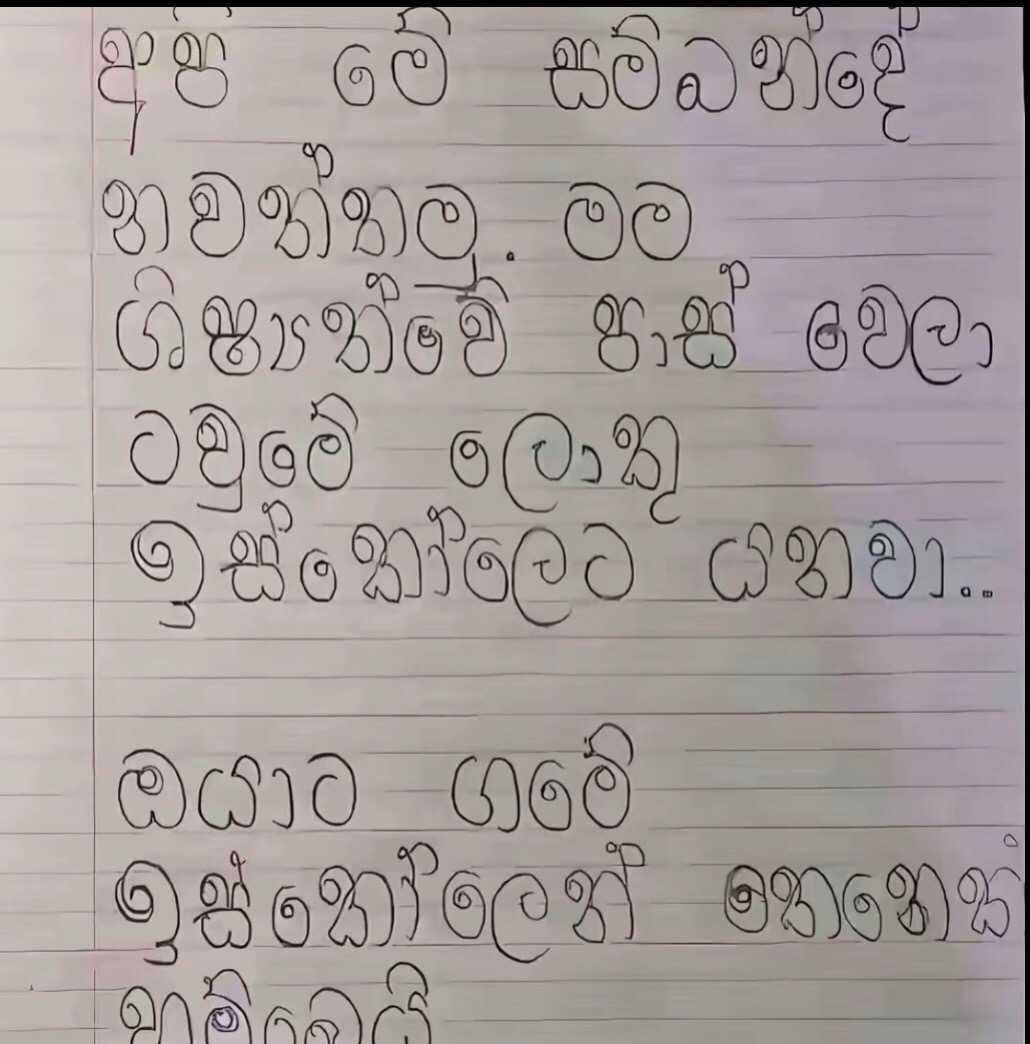 අපි මේ සම්බන්දේ
නවත්තමු. මම
ශිෂ්‍යත්වේ පාස් වෙලා
ටවුමේ ලොකු
ඉස්කෝලෙට යනවා..
ඔයාට ගමේ
ඉස්කෝලෙන් කෙනෙක්
හම්බෙයි